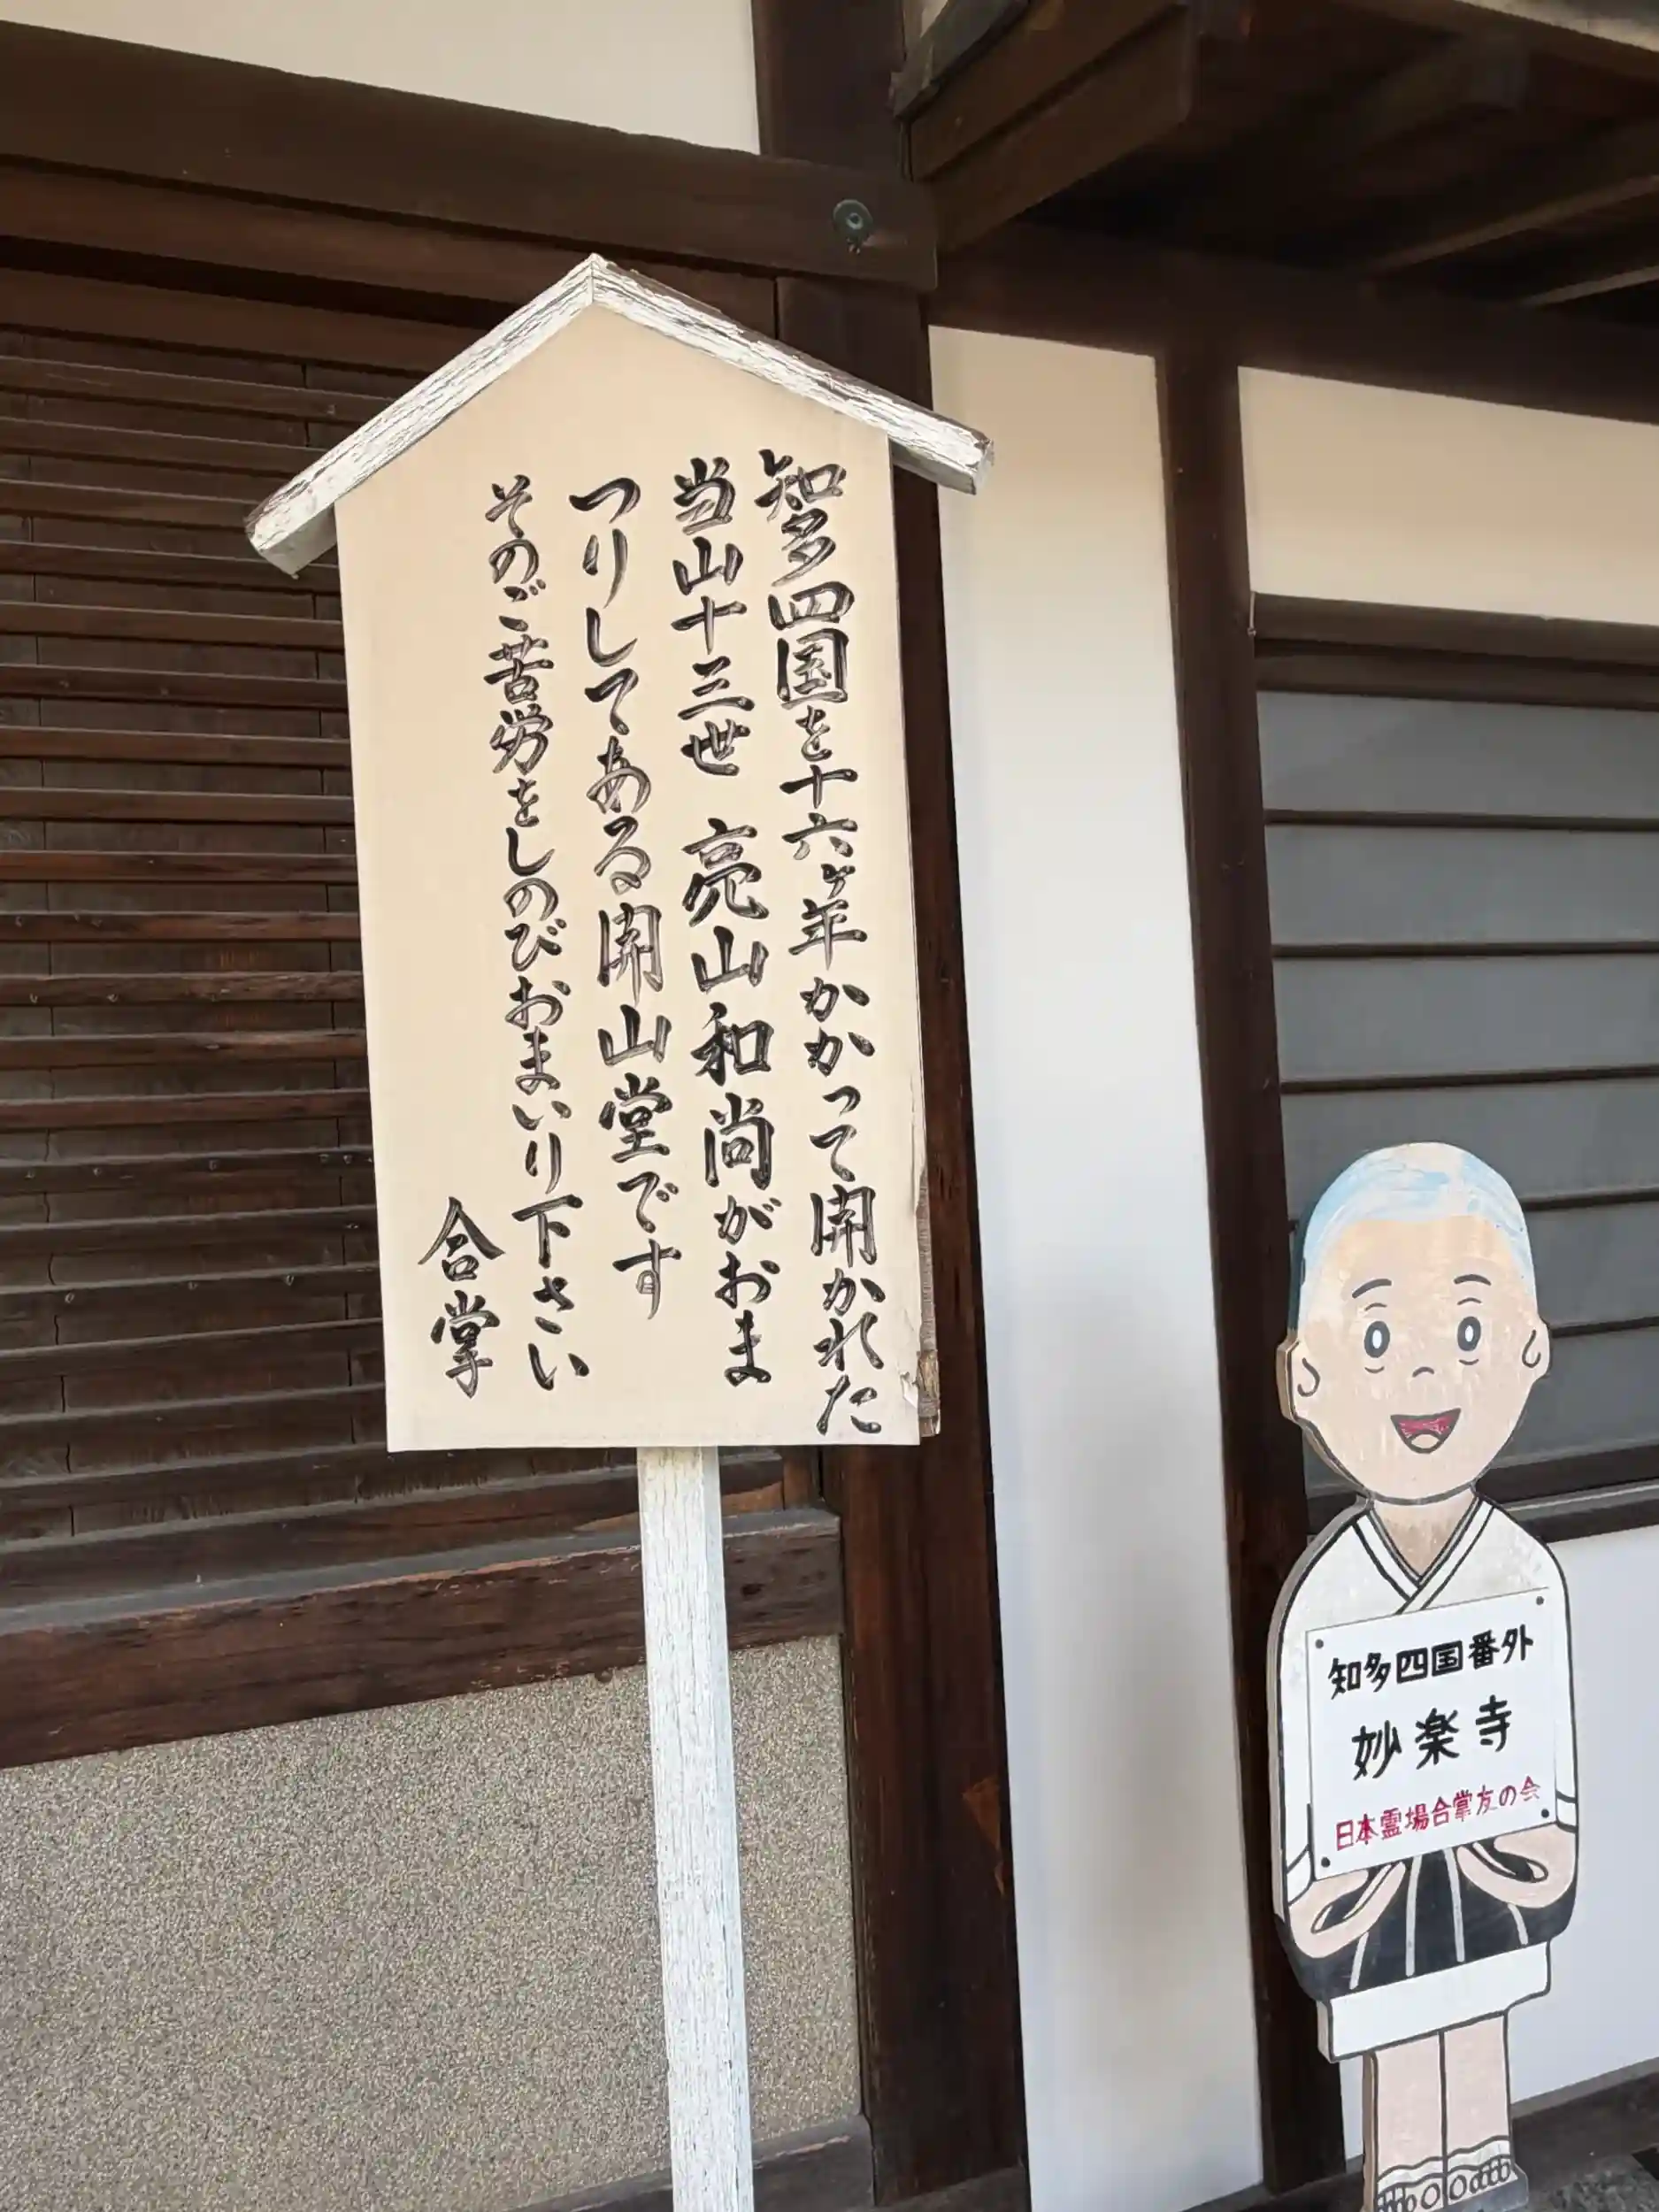 知多四国を十六ヶ年かかって開かれた
当山十三世 亮山和尚がおま
つりしてある開山堂です
そのご苦労をしのびおまいり下さい
合掌
知多四国番外
妙楽寺
日本霊場合掌友の会